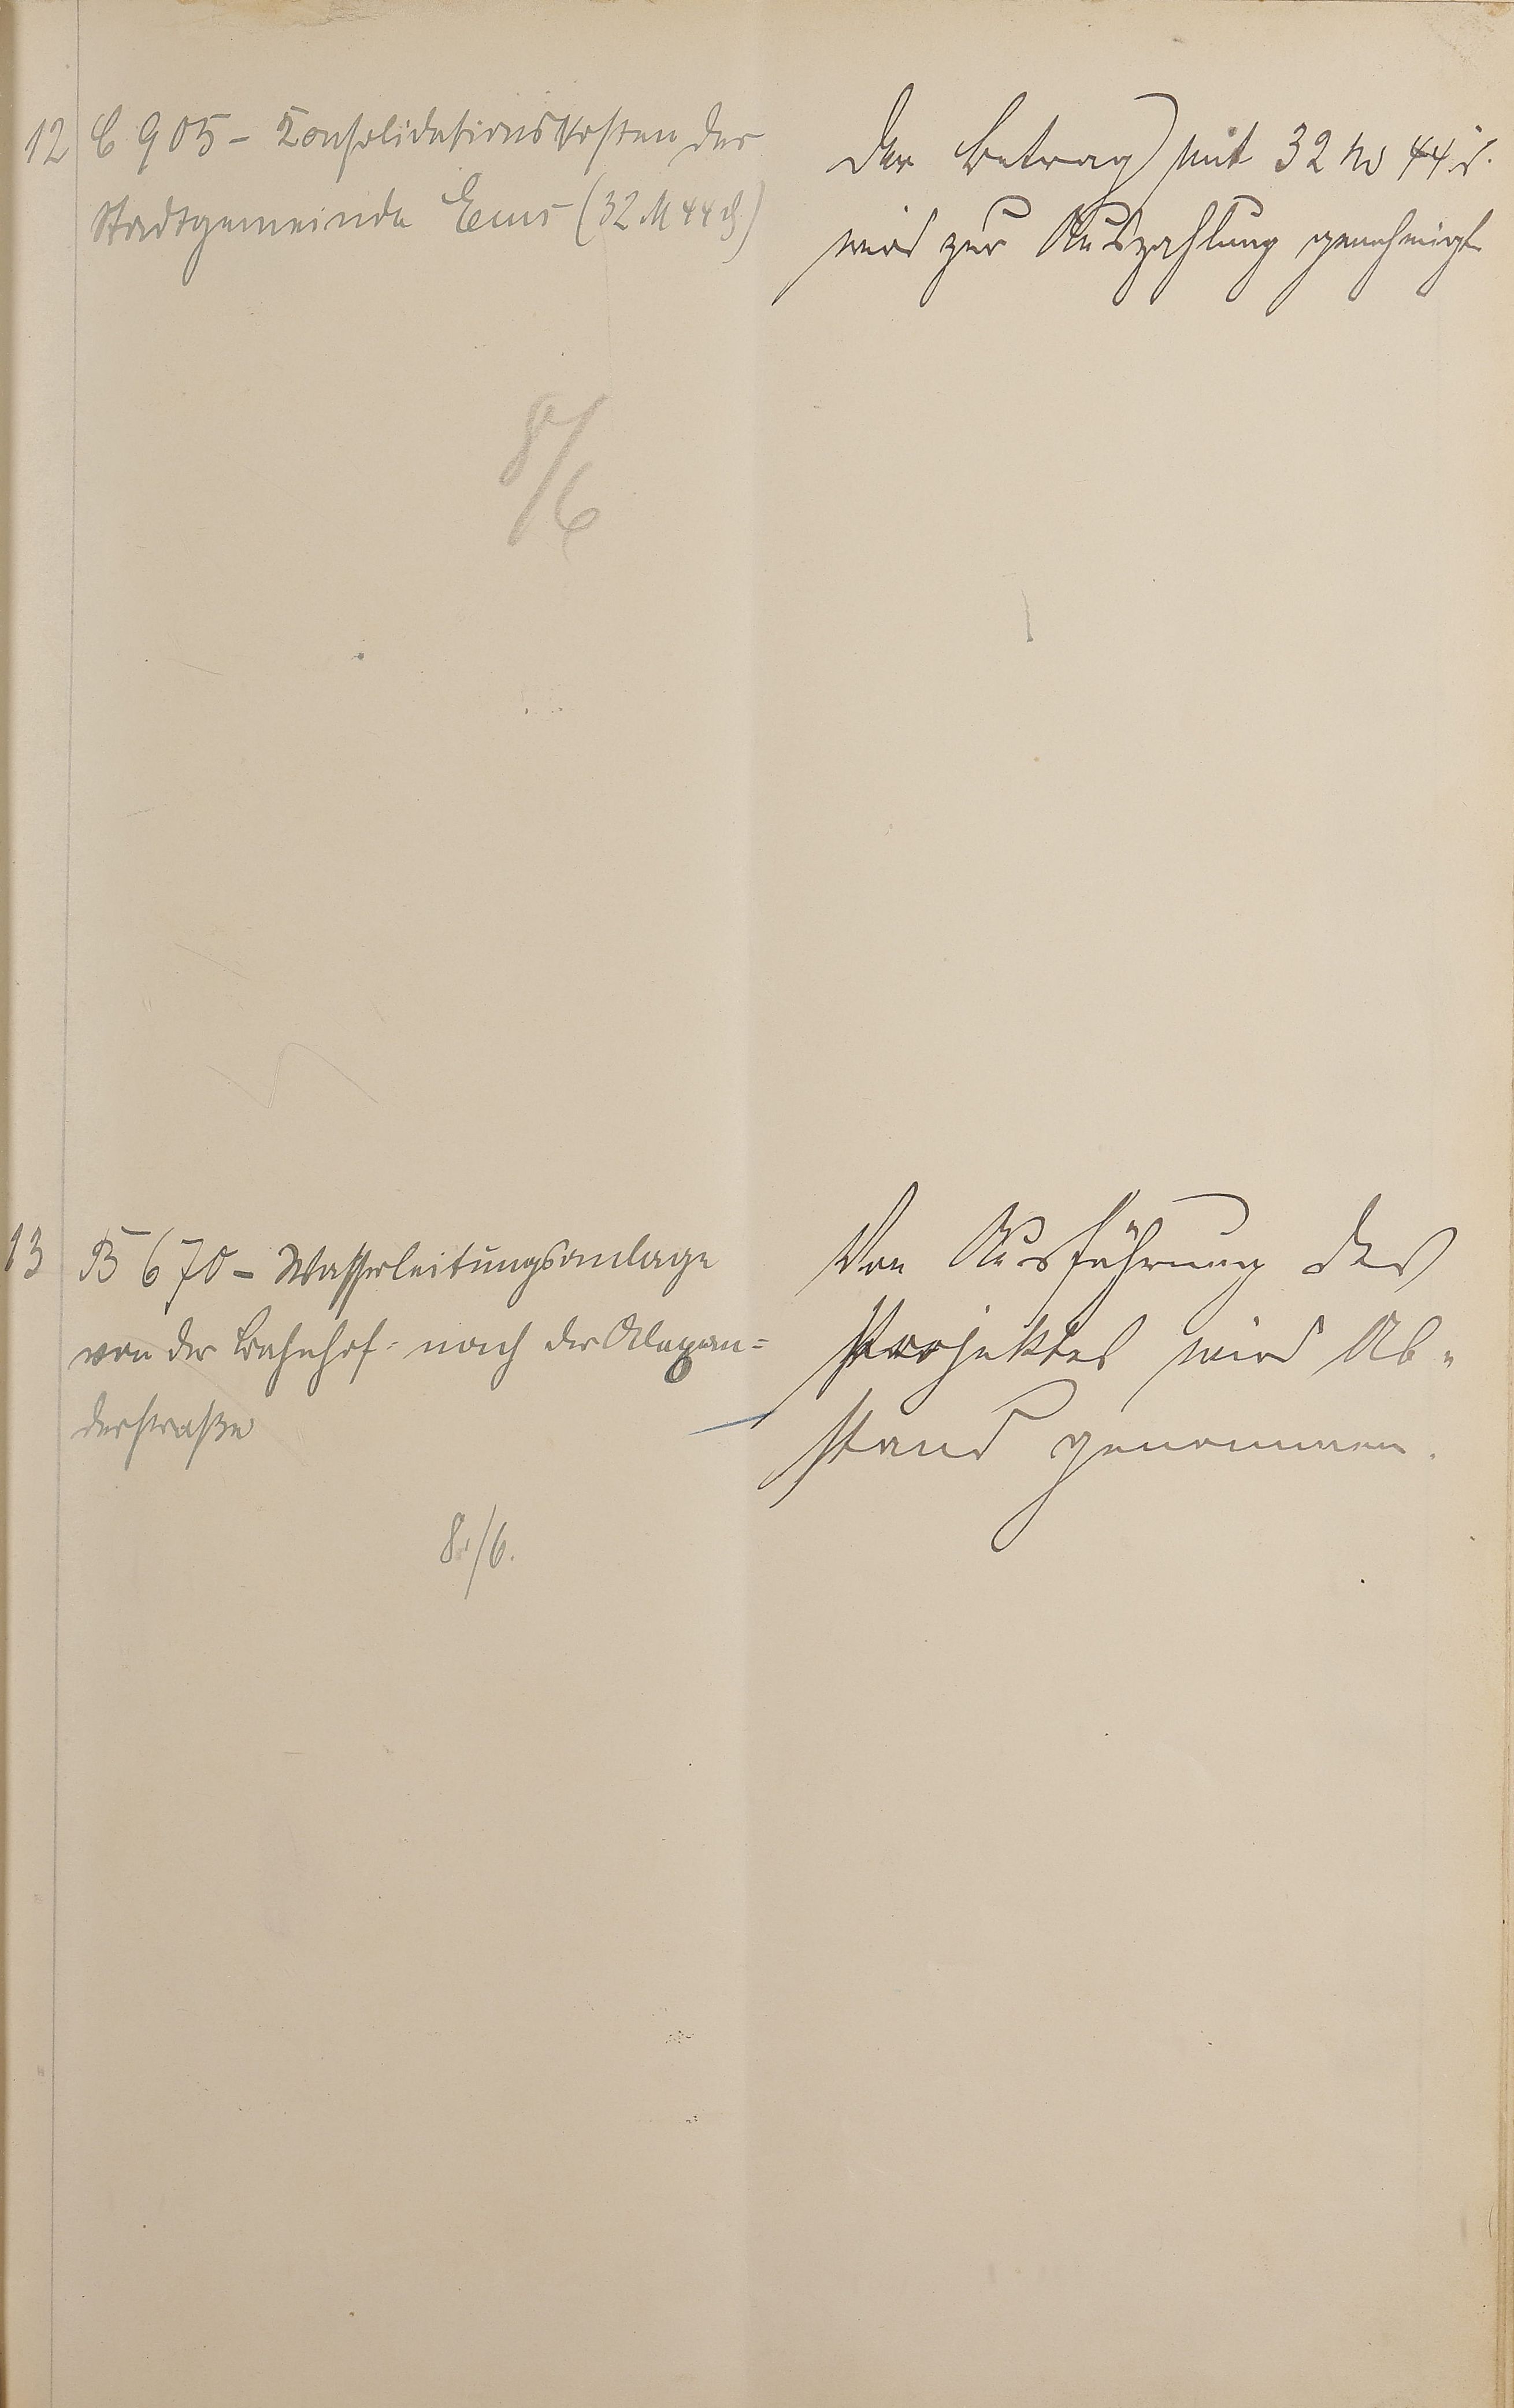 12 C 905 - Konsolidationskosten der
Stadtgemeinde Ems (32 M 44 ₰)
Der Betrag mit 32 M 44 ₰.
wird zur Auszahlung genehmigt
8/6
13 B 670 - Wasserleitungsanlage
von der Bahnhof- nach der Alexan=
derstraße
8./6.
Von Ausführung des
Projektes wird Ab-
stand genommen.